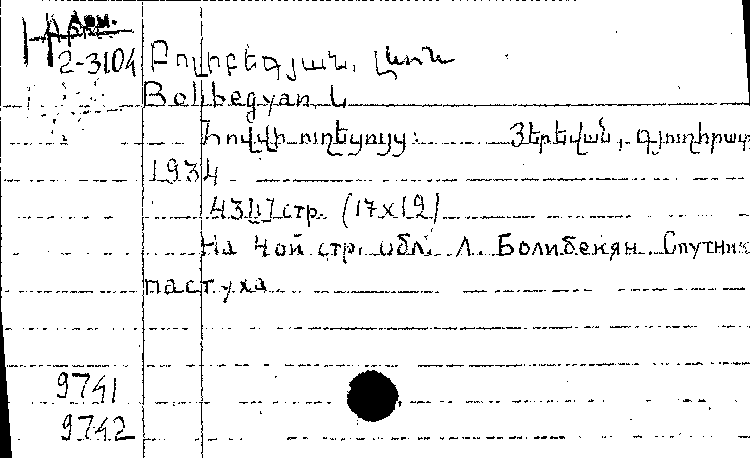 Арм.
2-3104 Բոլիբեգյան, Լևոն
Bolibegyan L
Հովվի ուղեցույց: Յերեվան, Գյուղհրատ
1934
43[1] стр. (17x12)
На 4ой стр. обл. Л. Болибекян. Спутник
пастуха
9741
9742